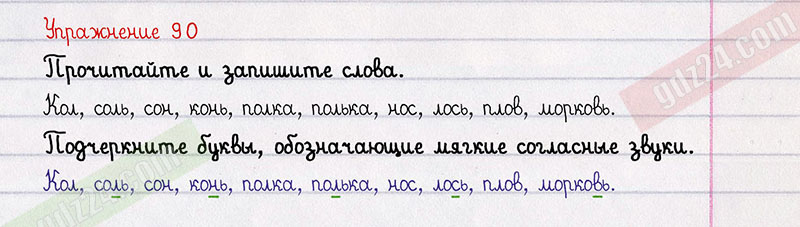 Упражнение 90
Прочитайте и запишите слова.
Кол, соль, сон, конь, полка, полька, нос, лось, плов, морковь.
Подчеркните буквы, обозначающие мягкие согласные звуки.
Кол, соль, сон, конь, полка, полька, нос, лось, плов, морковь.
gdz24.com
gdz24.com